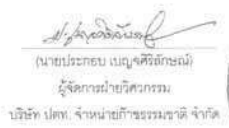 (นายประกอบ เบญจศิริลักษณ์)
ผู้จัดการฝ่ายวิศวกรรม
บริษัท ปตท. จำหน่ายก๊าซธรรมชาติ จำกัด